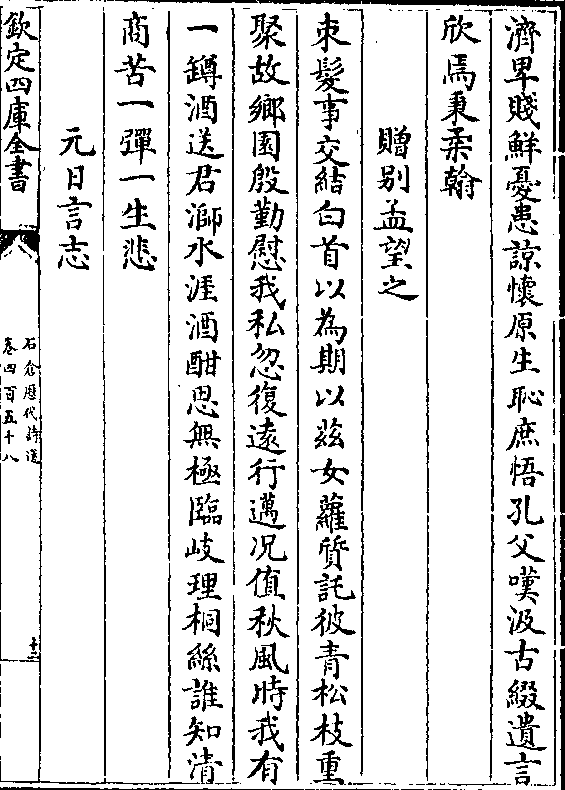 濟卑賤鮮憂患諒懷原生恥庶悟孔父嘆汲古綴遺言
欣焉秉柔翰
贈别孟望之
束髮事交結白首以為期以兹女蘿質託彼青松枝重
聚故鄉園殷勤慰我私忽復遠行邁况值秋風時我有
一罇酒送君㵝水涯酒酣思無極臨岐理桐絲誰知清
商苦一彈一生悲
元日言志
欽定四庫全書
石倉歷代詩選
卷四百五十八
十三